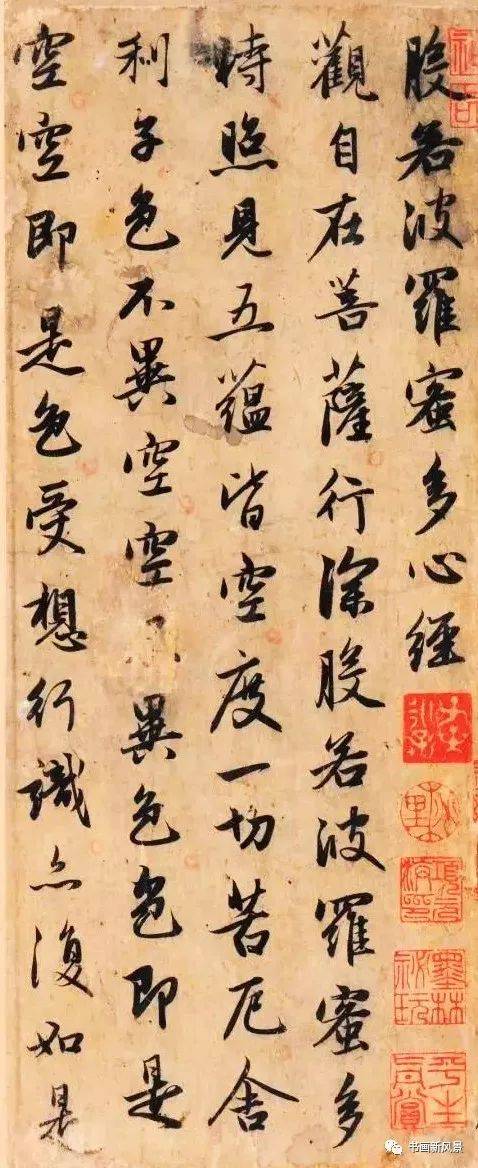 般若波羅蜜多心經
觀自在菩薩行深般若波羅蜜多
時照見五蘊皆空度一切苦厄舍
利子色不異空空不異色色即是
空空即是色受想行識亦復如是
項元汴印
墨林祕玩
平生真賞
书画新风景